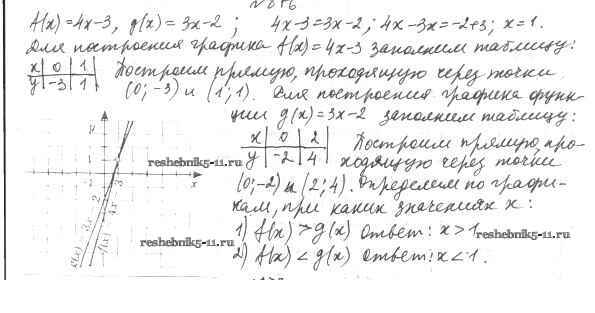 f(x)=4x-3, g(x)=3x-2; 4x-3=3x-2; 4x-3x=-2+3; x=1.
Для построения графика f(x)=4x-3 заполним таблицу:
x 0 1
y -3 1
Построим прямую, проходящую через точки
(0;-3) и (1;1). Для построения графика функ-
ции g(x)=3x-2 заполним таблицу:
x 0 2
y -2 4
Построим прямую, про-
ходящую через точки
(0;-2) и (2;4). Определяем по графи-
кам, при каких значениях x:
1) f(x)>g(x) ответ: x>1
2) f(x)<g(x) ответ: x<1.
y
x
reshebnik5-11.ru
reshebnik5-11.ru
reshebnik5-11.ru